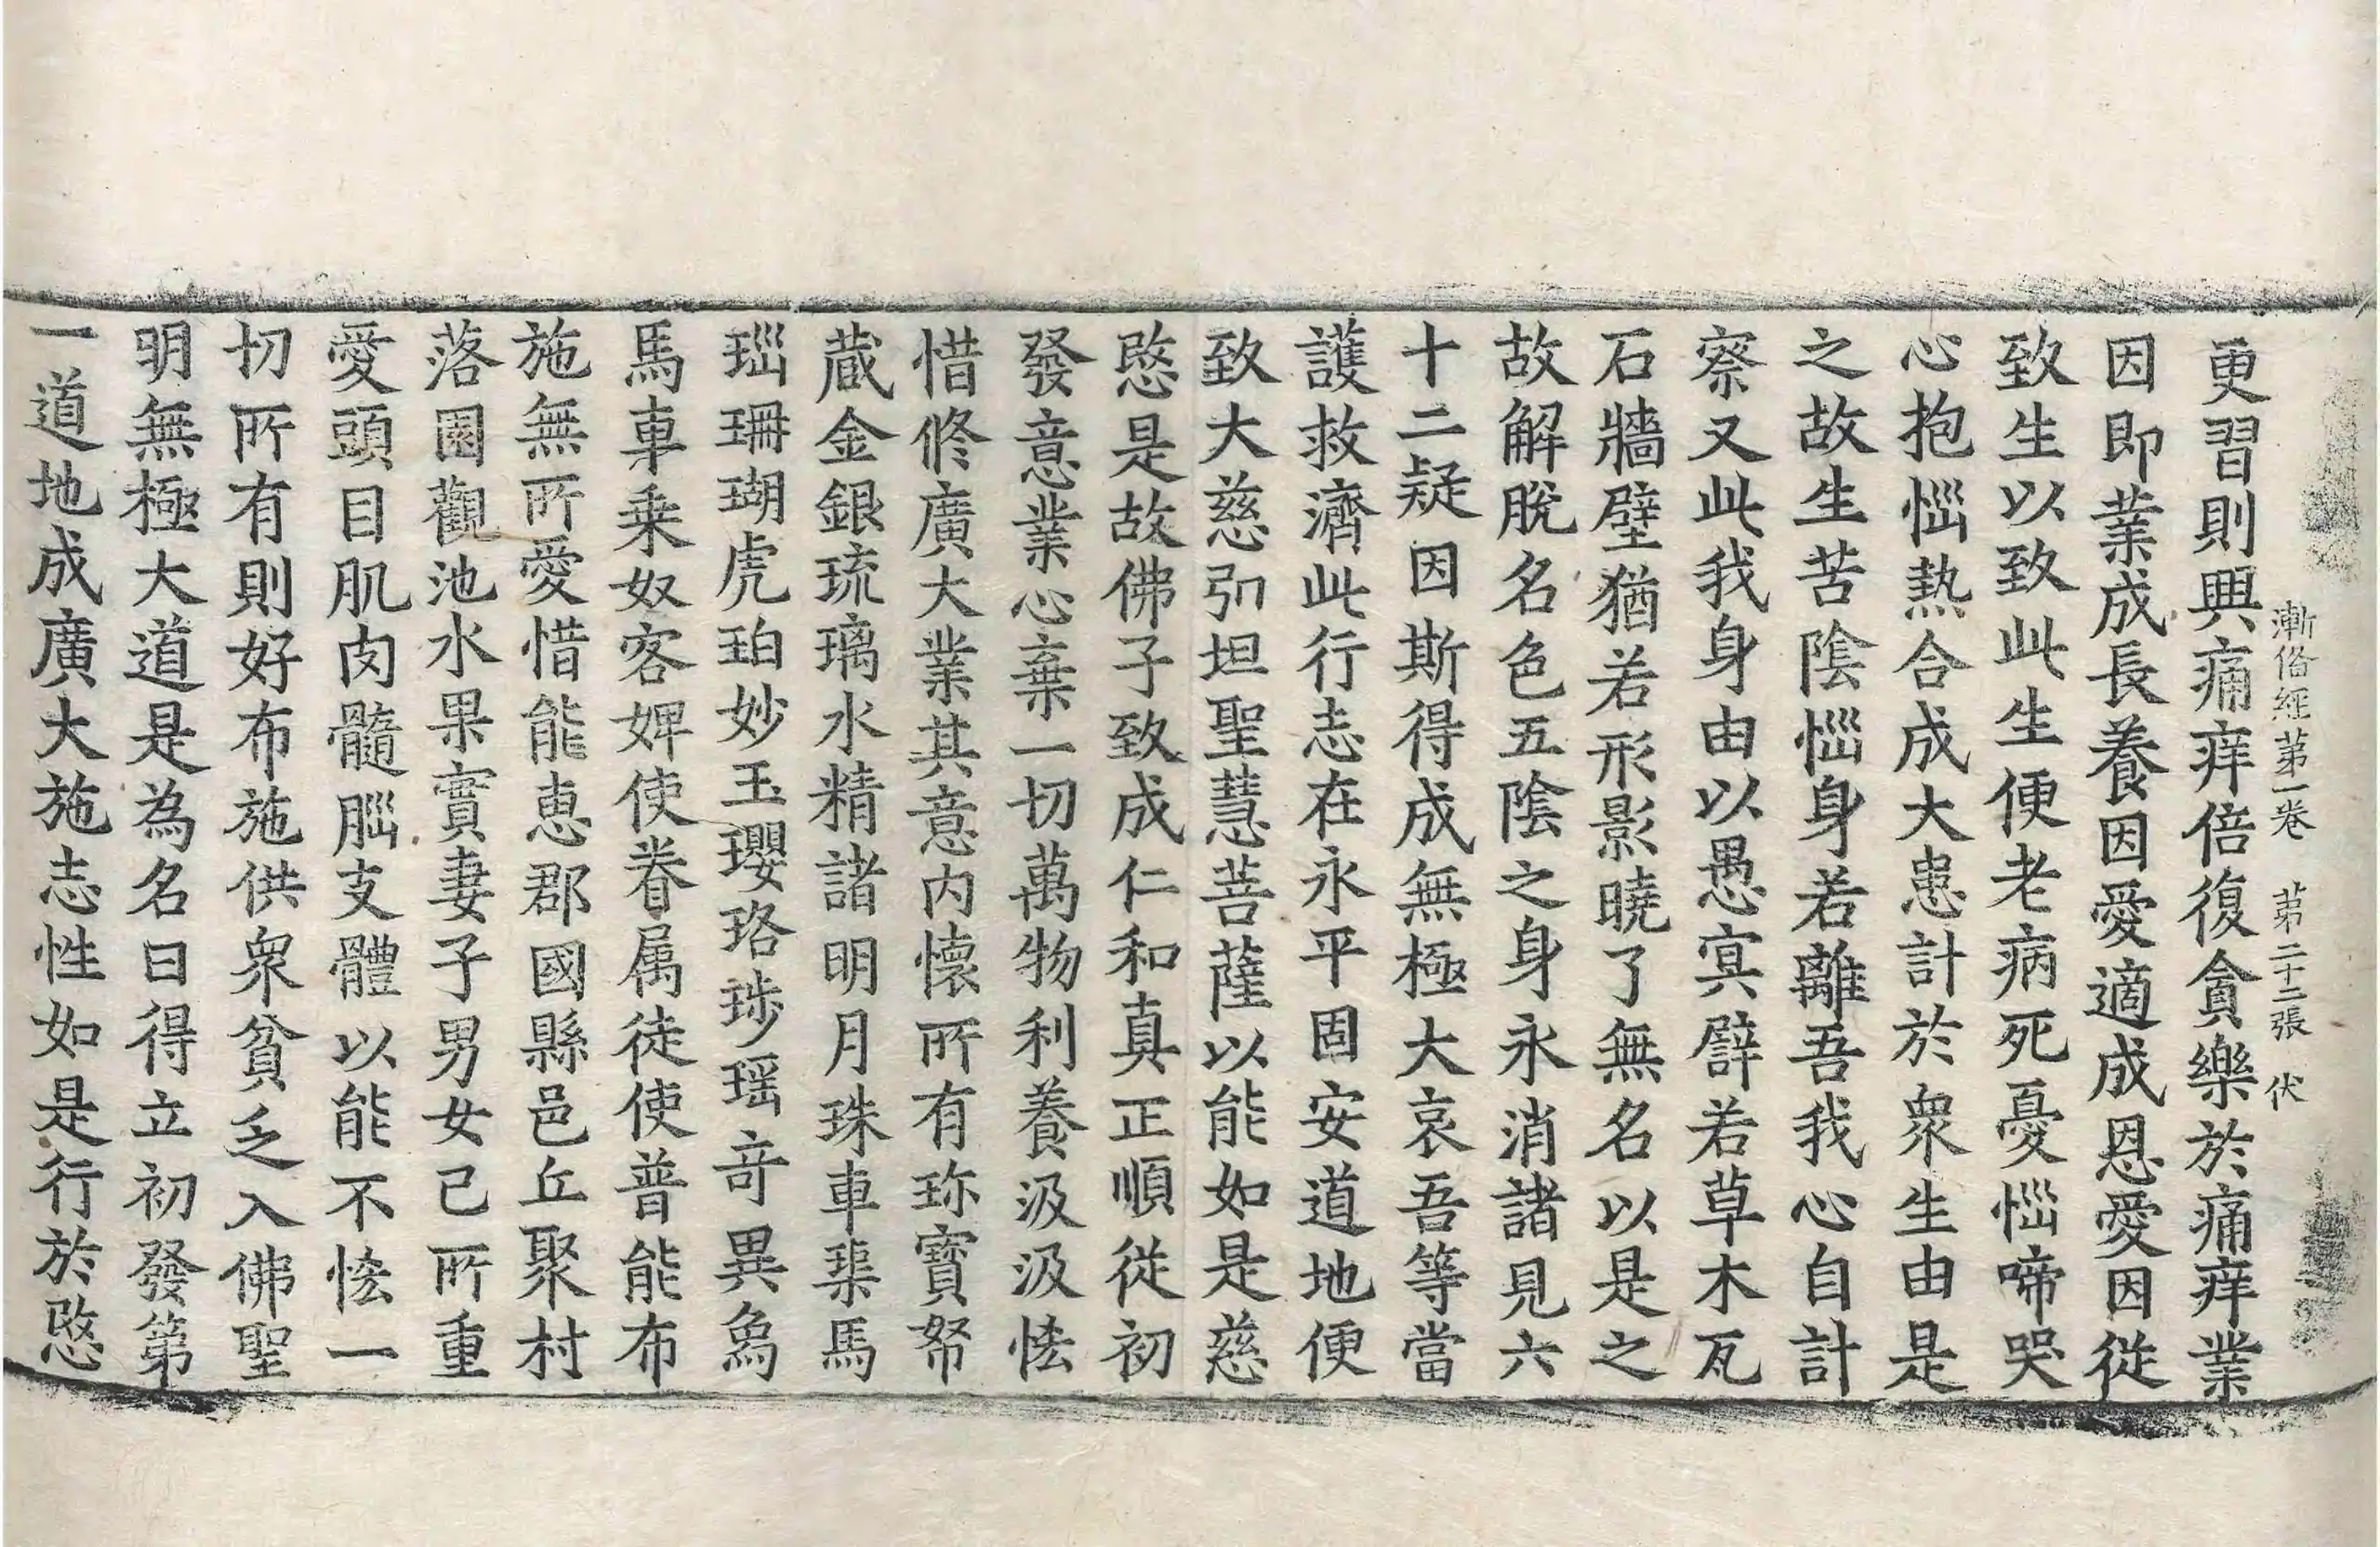 漸俻經第一卷 第二十二張 伏
更習則興痛痒倍復貪樂於痛痒業
因即業成長養因愛適成恩愛因從
致生以致此生便老病死憂惱啼哭
心抱惱熱合成大患計於衆生由是
之故生苦陰惱身若離吾我心自計
察又此我身由以愚冥譬若草木瓦
石牆壁猶若形影曉了無名以是之
故解脫名色五陰之身永消諸見六
十二疑因斯得成無極大哀吾等當
護救濟此行志在永平固安道地便
致大慈引坦聖慧菩薩以能如是慈
愍是故佛子致成仁和真正順從初
發意業心棄一切萬物利養汲汲恡
惜修廣大業其意内懷所有珎寶帑
蔵金銀琉璃水精諸明月珠車𤦲馬
瑙珊瑚虎珀妙玉瓔珞琗瑶竒異象
馬車乗奴客婢使眷属徒使普能布
施無所愛惜能恵郡國縣邑丘聚村
落園觀池水果實妻子男女己所重
愛頭目肌肉髓腦支體以能不恡一
切所有則好布施供衆貧乏入佛聖
明無極大道是為名曰得立初發第
一道地成廣大施志性如是行於愍